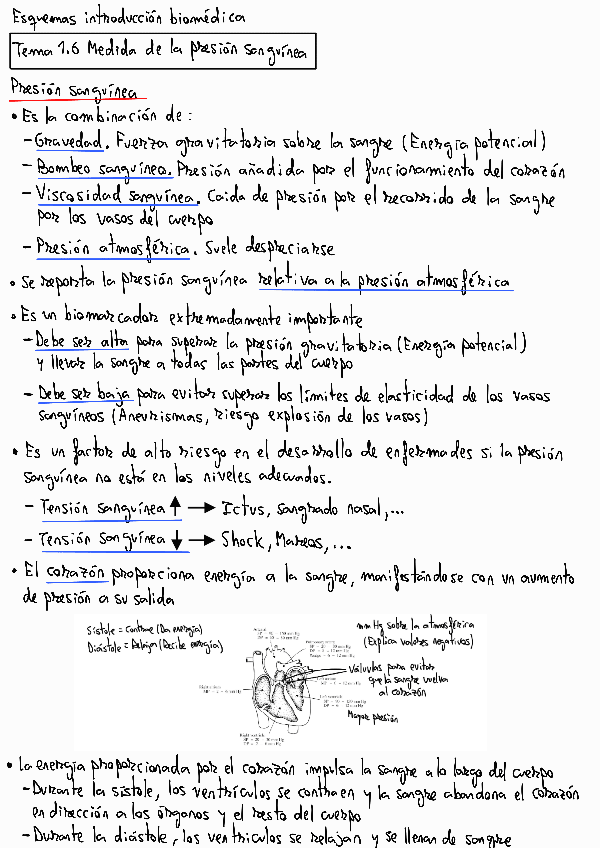 Esquemas introducción biomédica
Tema 1.6 Medida de la presión sanguínea
Presión sanguínea
• Es la combinación de:
– Gravedad. Fuerza gravitatoria sobre la sangre (Energía potencial)
– Bombeo sanguíneo. Presión añadida por el funcionamiento del corazón
– Viscosidad sanguínea. Caida de presión por el recorrido de la sangre
por los vasos del cuerpo
– Presión atmosférica. Suele despreciarse
• Se reporta la presión sanguínea relativa a la presión atmosférica
• Es un biomarcador extremadamente importante
– Debe ser alta para superar la presión gravitatoria (Energía potencial)
y llevar la sangre a todas las partes del cuerpo
– Debe ser baja para evitar superar los límites de elasticidad de los vasos
sanguíneos (Aneurismas, riesgo explosión de los vasos)
• Es un factor de alto riesgo en el desarrollo de enfermades si la presión
sanguínea no está en los niveles adecuados.
– Tensión sanguínea ↑ → Ictus, sangrado nasal,...
– Tensión sanguínea ↓ → Shock, Mareos, ...
• El corazón proporciona energía a la sangre, manifestándose con un aumento
de presión a su salida
Sístole = Contrae (Da energía)
Diástole = Relajan (Recibe energía)
mm Hg sobre la atmosférica
(Explica valores negativos)
Válvulas para evitar
que la sangre vuelva
al corazón
Mayor presión
• La energía proporcionada por el corazón impulsa la sangre a lo largo del cuerpo
– Durante la sístole, los ventrículos se contraen y la sangre abandona el corazón
en dirección a los órganos y el resto del cuerpo
– Durante la diástole, los ventriculos se relajan y se llenan de sangre